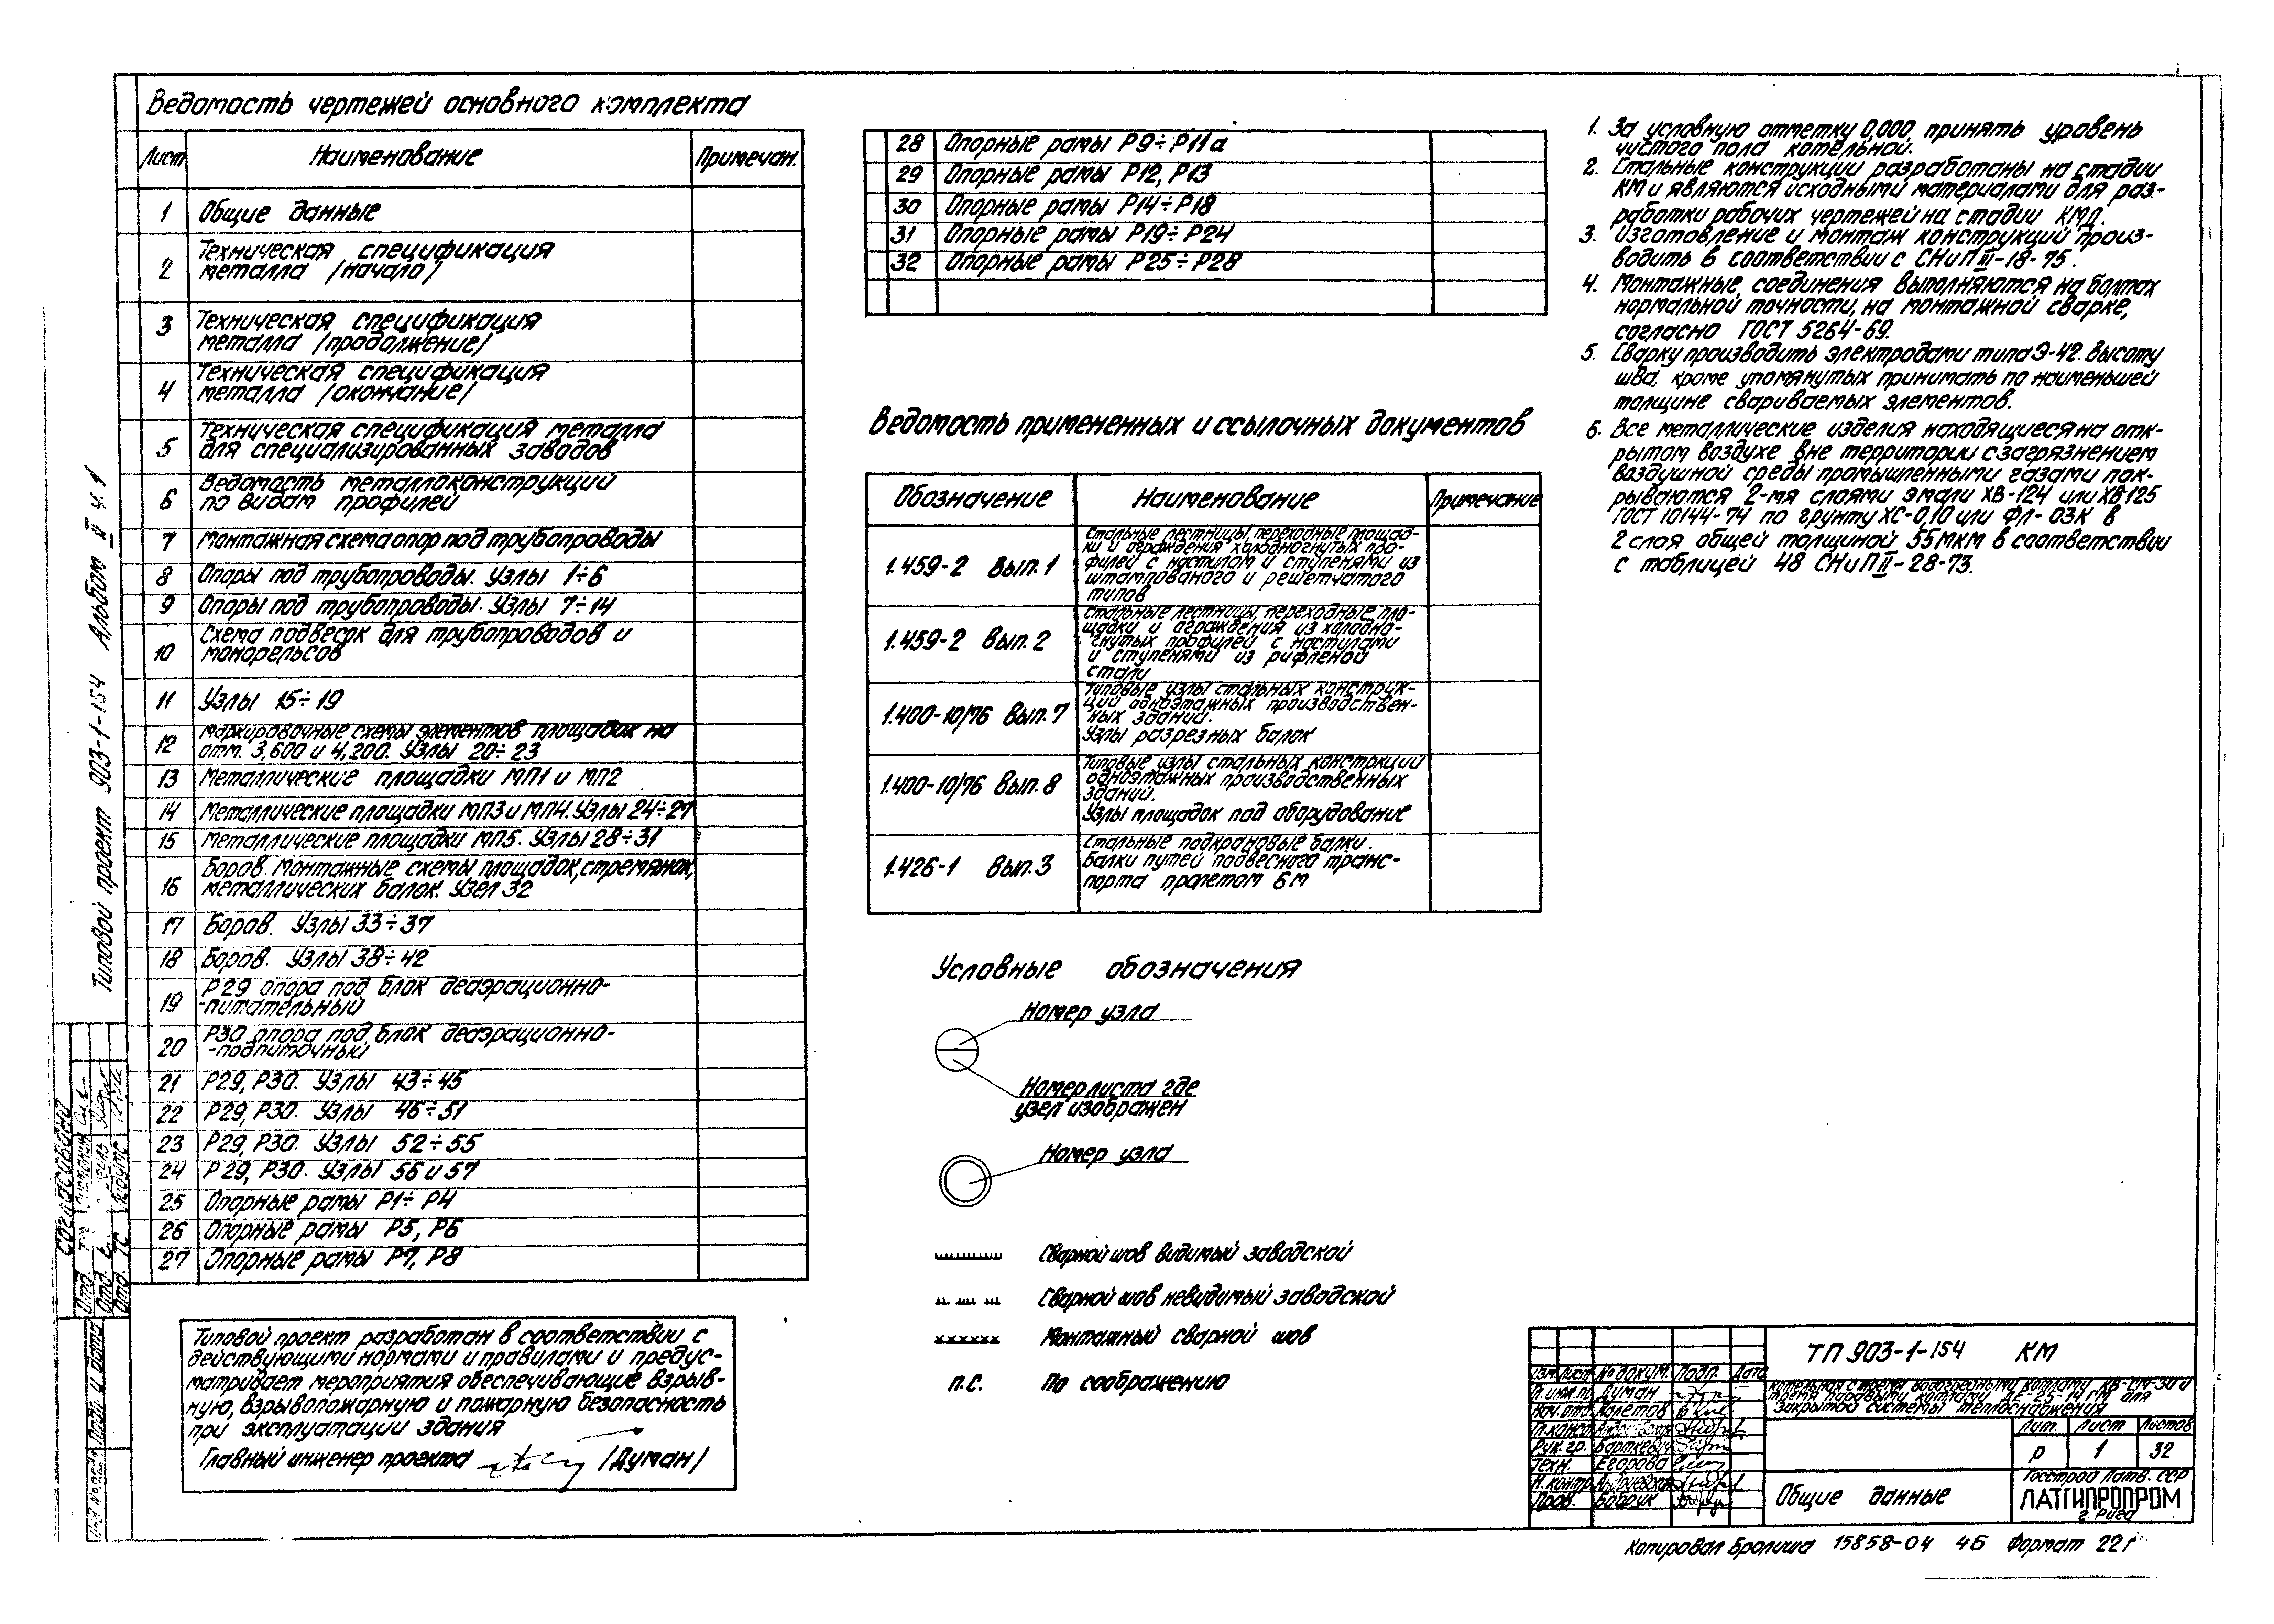 Ведомость чертежей основного комплекта
Лист Наименование Примечан.
1 Общие данные
2 Техническая спецификация
металла /начало/
3 Техническая спецификация
металла /продолжение/
4 Техническая спецификация
металла /окончание/
5 Техническая спецификация металла
для специализированных заводов
6 Ведомость металлоконструкций
по видам профилей
7 Монтажная схема опор под трубопроводы
8 Опоры под трубопроводы. Узлы 1÷6
9 Опоры под трубопроводы. Узлы 7÷14
10 Схема подвесок для трубопроводов и
монорельсов
11 Узлы 15÷19
12 Маркировочные схемы элементов площадок на
отм. 3,600 и 4,200. Узлы 20÷23
13 Металлические площадки МП1 и МП2
14 Металлические площадки МП3 и МП4. Узлы 24÷27
15 Металлические площадки МП5. Узлы 28÷31
16 Боров. Монтажные схемы площадок, стремянок,
металлических балок. Узел 32
17 Боров. Узлы 33÷37
18 Боров. Узлы 38÷42
19 Р29 опора под блок деаэрационно-
-питательный
20 Р30 опора под блок деаэрационно-
-подпиточный
21 Р29, Р30. Узлы 43÷45
22 Р29, Р30. Узлы 46÷51
23 Р29, Р30. Узлы 52÷55
24 Р29, Р30. Узлы 56 и 57
25 Опорные рамы Р1÷Р4
26 Опорные рамы Р5, Р6
27 Опорные рамы Р7, Р8
28 Опорные рамы Р9÷Р11а
29 Опорные рамы Р12, Р13
30 Опорные рамы Р14÷Р18
31 Опорные рамы Р19÷Р24
32 Опорные рамы Р25÷Р28
Типовой проект разработан в соответствии с
действующими нормами и правилами и предус-
матривает мероприятия обеспечивающие взрыв-
ную, взрывопожарную и пожарную безопасность
при эксплуатации здания
Главный инженер проекта /Думан/
Ведомость примененных и ссылочных документов
Обозначение Наименование Примечание
1.459-2 Вып. 1 Стальные лестницы, переходные площад-
ки и ограждения холодногнутых про-
филей с настилом и ступенями из
штампованого и решетчатого
типов
1.459-2 Вып. 2 Стальные лестницы, переходные пло-
щадки и ограждения из холодно-
гнутых профилей с настилами
и ступенями из рифленой
стали
1.400-10/76 Вып. 7 Типовые узлы стальных конструк-
ций одноэтажных производствен-
ных зданий.
Узлы разрезных балок
1.400-10/76 Вып. 8 Типовые узлы стальных конструкций
одноэтажных производственных
зданий.
Узлы площадок под оборудование
1.426-1 Вып. 3 Стальные подкрановые балки.
Балки путей подвесного транс-
порта пролетом 6м
Условные обозначения
Номер узла
Номер листа где
узел изображен
Номер узла
Сварной шов видимый заводской
Сварной шов невидимый заводской
Монтажный сварной шов
п.с. По соображению
1. За условную отметку 0,000, принять уровень
чистого пола котельной.
2. Стальные конструкции разработаны на стадии
КМ и являются исходными материалами для раз-
работки рабочих чертежей на стадии КМД.
3. Изготовление и монтаж конструкций произ-
водить в соответствии с СНиП III-18-75.
4. Монтажные соединения выполняются на болтах
нормальной точности, на монтажной сварке,
согласно ГОСТ 5264-69.
5. Сварку производить электродами типа Э-42. Высоту
шва, кроме упомянутых принимать по наименьшей
толщине свариваемых элементов.
6. Все металлические изделия находящиеся на отк-
рытом воздухе вне территории с загрязнением
воздушной среды промышленными газами пок-
рываются 2-мя слоями эмали ХВ-124 или ХВ125
ГОСТ 10144-74 по грунту ХС-0,10 или ФЛ-03К в
2 слоя общей толщиной 55мкм в соответствии
с таблицей 48 СНиП II-28-73.
Типовой проект 903-1-154 Альбом II ч.1
Согласовано
Отд.
Отд.
Отд. ТС
Подп. и дата
ТП 903-1-154 КМ
Изм. Лист № докум. Подп. Дата
Гл. инж. пр. Думан
Нач. отд.
Гл. конст.
Рук. гр. Барткевич
Техн. Егорова
Н. контр.
Пров.
Котельная с тремя водогрейными котлами КВ-ГМ-30 и
тремя паровыми котлами ДЕ-25-14ГМ для
закрытой системы теплоснабжения
Лит. Лист Листов
Р 1 32
Общие данные
Госстрой Латв. ССР
ЛАТГИПРОПРОМ
г. Рига
Копировал Бролиша 15858-04 46 Формат 22Г